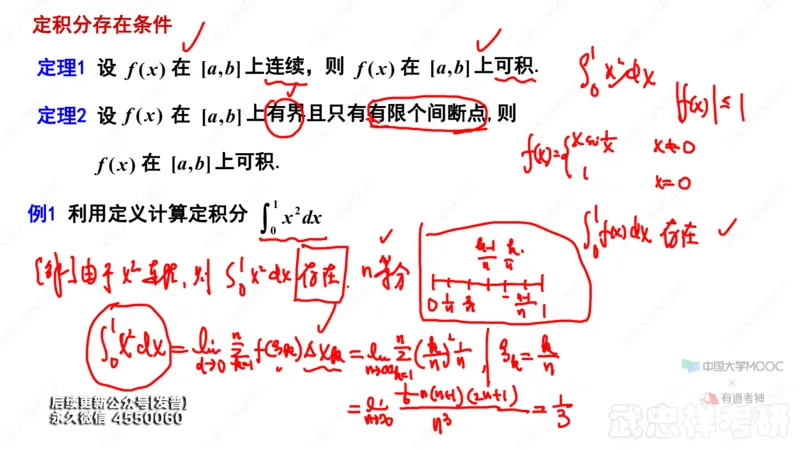 定积分存在条件
定理1 设 f(x) 在 [a,b] 上连续，则 f(x) 在 [a,b] 上可积.
定理2 设 f(x) 在 [a,b] 上有界且只有有限个间断点，则
f(x) 在 [a,b] 上可积.
∫₀¹ x² dx
|f(x)| ≤ 1
f(x) = { x sin 1/x   x≠0
1   x=0
∫₀¹ f(x) dx 存在 ✓
例1 利用定义计算定积分 ∫₀¹ x² dx
[解] 由于 x² 连续，则 ∫₀¹ x² dx 存在. n等分
(k-1)/n k/n
0 1/n 2/n (n-1)/n 1
∫₀¹ x² dx = lim λ→0 Σ k=1 n f(ξk) Δxk = lim n→∞ Σ k=1 n (k/n)² 1/n, ξk = k/n
= lim n→∞ (1/6 n(n+1)(2n+1))/n³ = 1/3
中国大学MOOC
×
有道考神
武忠祥考研
后续更新公众号[发普]
永久微信 4550060